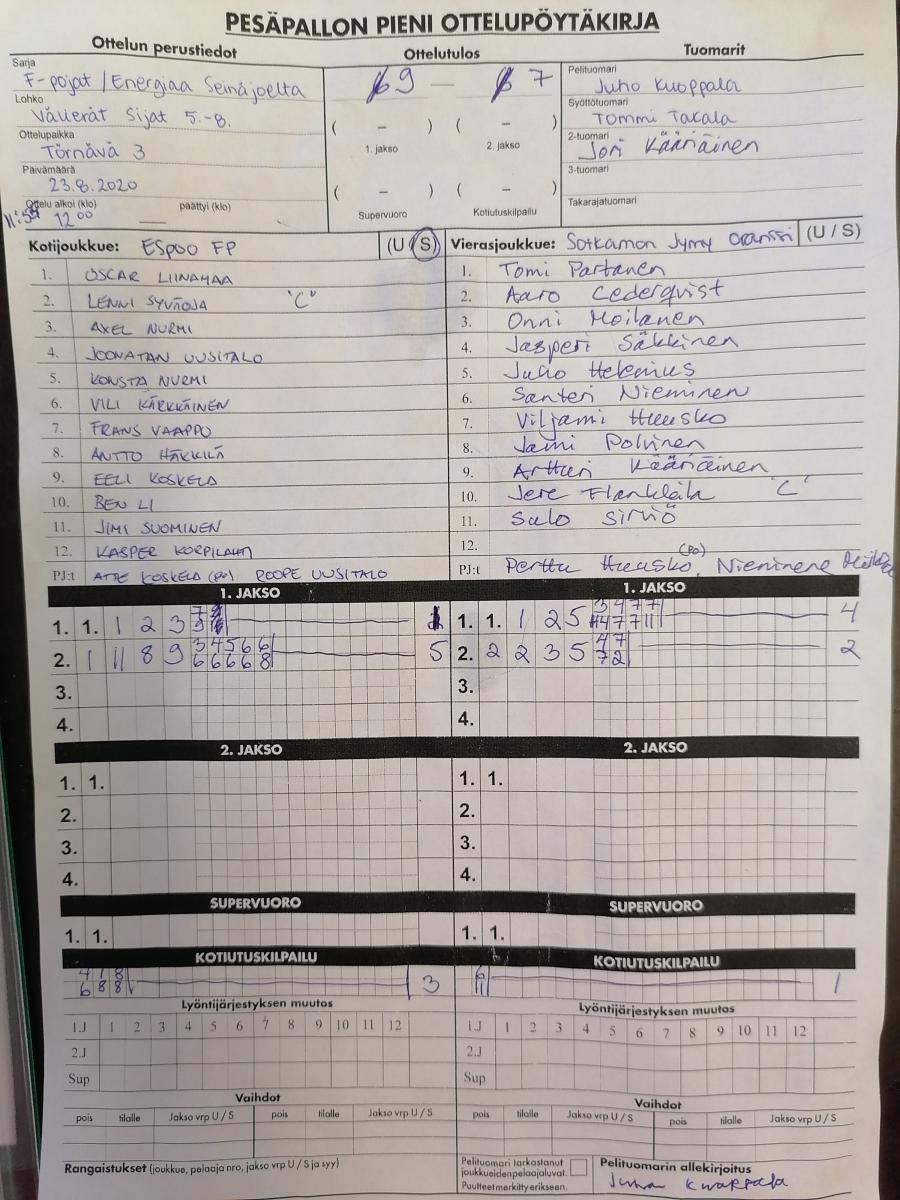 PESÄPALLON PIENI OTTELUPÖYTÄKIRJA
Ottelun perustiedot
Ottelutulos
Tuomarit
Sarja
F-pojat / Energiaa Seinäjoelta
Lohko
Välierät Sijat 5.-8.
Ottelupaikka
Törnävä 3
Päivämäärä
23.8.2020
Ottelu alkoi (klo) päättyi (klo)
12 00
9 — 7
( – ) ( – )
1. jakso 2. jakso
( – ) ( – )
Supervuoro Kotiutuskilpailu
Pelituomari
Juho Kuoppala
Syöttötuomari
Tommi Takala
2-tuomari
Jori Kääriäinen
3-tuomari
Takarajatuomari
Kotijoukkue: ESPOO FP (U / S)
1. OSCAR LIINAMAA
2. LENNI SYVÄOJA "C"
3. AXEL NURMI
4. JOONATAN UUSITALO
5. KONSTA NURMI
6. VILI KÄRKKÄINEN
7. FRANS VAAPPO
8. ANTTO HÄKKILÄ
9. EELI KOSKELA
10. BEN LI
11. JIMI SUOMINEN
12. KASPER KORPILAHTI
PJ:t ATTE KOSKELA (PO) ROOPE UUSITALO
Vierasjoukkue: Sotkamon Jymy Oranssi (U / S)
1. Tomi Partanen
2. Aaro Cederqvist
3. Onni Moilanen
4. Jasperi Säkkinen
5. Juho Helenius
6. Santeri Nieminen
7. Viljami Huusko
8. Jami Polvinen
9. Artturi Kääriäinen
10. Jere "C"
11. Sulo Sirviö
12.
PJ:t Perttu Huusko (PO),
1. JAKSO
1. 1. 1 2 3
2. 1 11 8 9 3 4 5 6 6 5
6 6 6 6 8
3.
4.
1. JAKSO
1. 1. 1 2 5 4
2. 2 2 3 5 4 7 2
7 2
3.
4.
2. JAKSO
1. 1.
2.
3.
4.
2. JAKSO
1. 1.
2.
3.
4.
SUPERVUORO
1. 1.
SUPERVUORO
1. 1.
KOTIUTUSKILPAILU
4 1 8 3
6 8 8
KOTIUTUSKILPAILU
6 1
11
Lyöntijärjestyksen muutos
1.J 1 2 3 4 5 6 7 8 9 10 11 12
2.J
Sup
Lyöntijärjestyksen muutos
1.J 1 2 3 4 5 6 7 8 9 10 11 12
2.J
Sup
Vaihdot
pois tilalle Jakso vrp U / S pois tilalle Jakso vrp U / S
Vaihdot
pois tilalle Jakso vrp U / S pois tilalle Jakso vrp U / S
Rangaistukset (joukkue, pelaaja nro, jakso vrp U / S ja syy)
Pelituomari tarkastanut
joukkueidenpelaajaluvat.
Puutteet merkitty erikseen.
Pelituomarin allekirjoitus
Juha Kuoppala